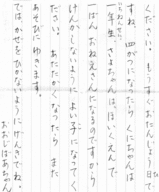 ください。もうすぐおたんじょう日で
すね。四がつになったらくにちゃんは
一年生、さよちゃんは、ほいくえんで
一ばんおねえさんになるのですから
けんかしないようによい子になってく
ださい。あたたかくなったら また
あそびにゆきます。
では、かぜをひかないようにげんきでね。
おおじばあちゃん